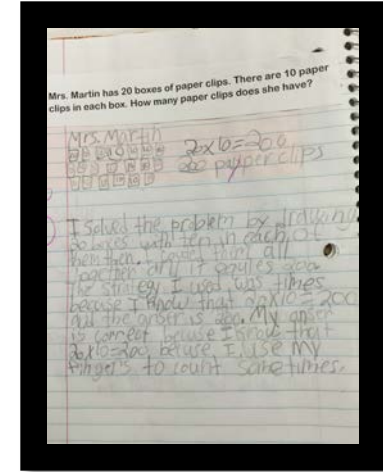 Mrs. Martin has 20 boxes of paper clips. There are 10 paper
clips in each box. How many paper clips does she have?
Mrs. Martin
20x10=200
200 payper clips
I solved the problem by drawing
20 boxes with ten in each of
them then all
together and it equles 200.
The strategy I used was times
becuse I know that 20x10=200
and the anser is 200. My anser
is correct becuse I know that
20x10=200, becuse I use my
fingers to count sometimes.